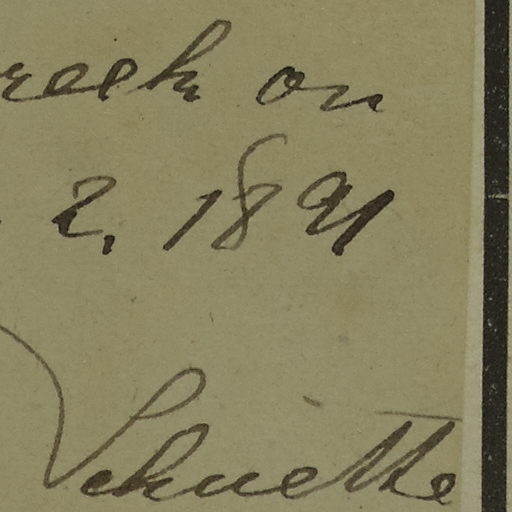 reek on
2, 1891
Schuette